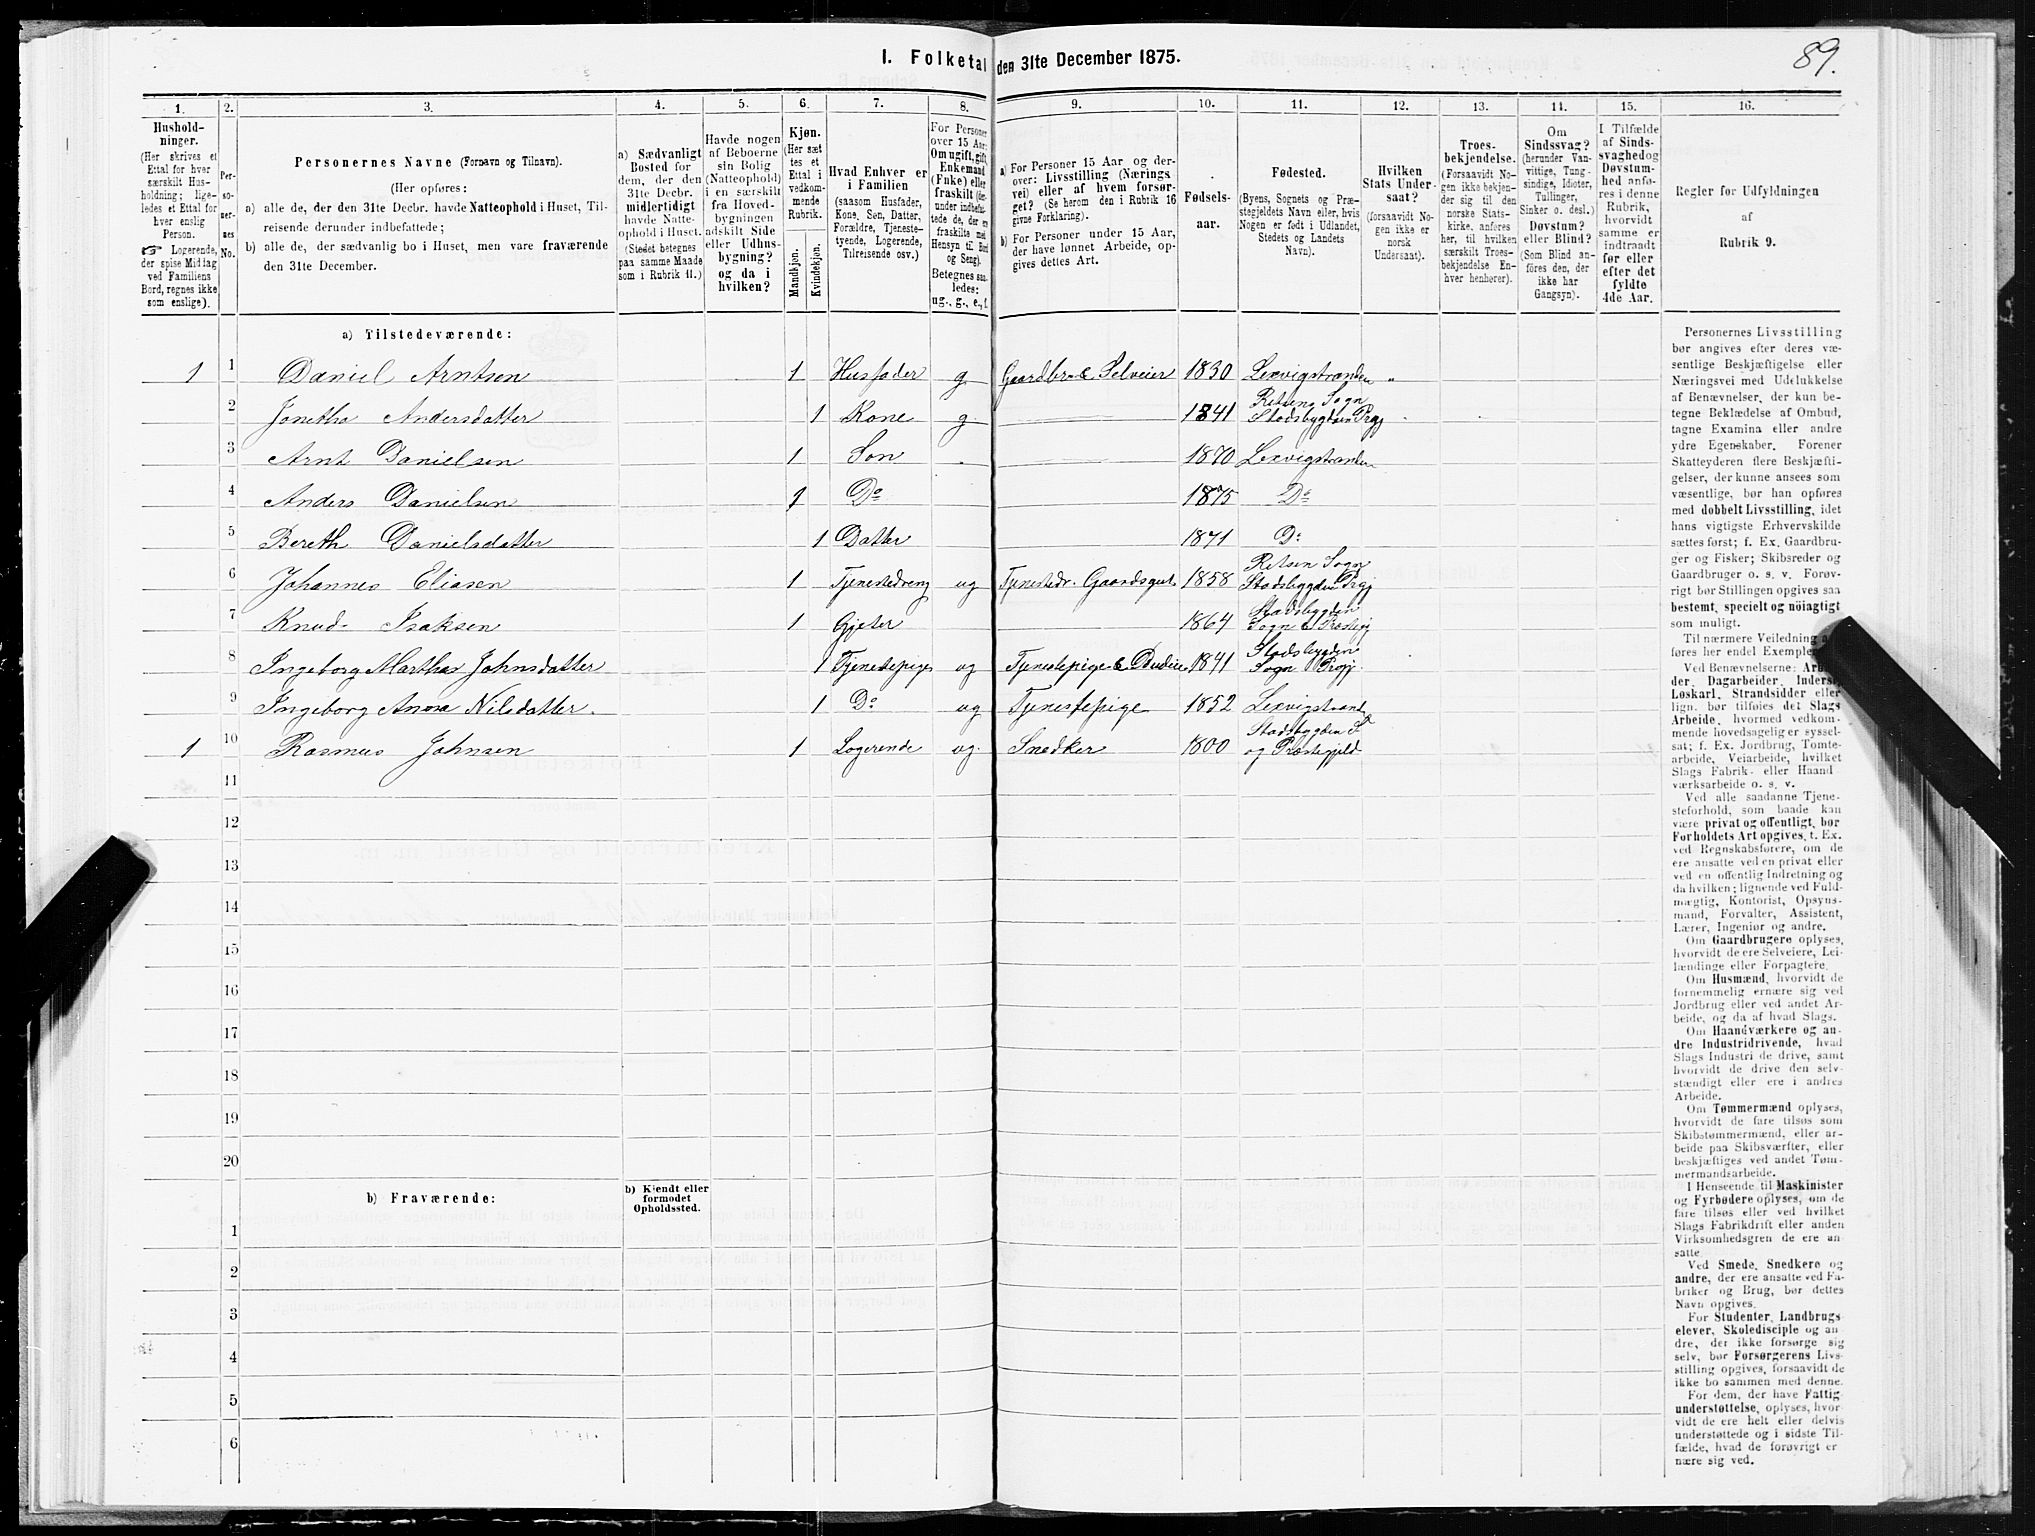 89.
I. Folketal den 31te December 1875.
1. 2. 3. 4. 5. 6. 7. 8. 9. 10. 11. 12. 13. 14. 15. 16.
Hushold-
ninger.
(Her skrives et
Ettal for hver
særskilt Hus-
holdning; lige-
ledes et Ettal for
hver enslig
Person.
☞ Logerende,
der spise Middag
ved Familiens
Bord, regnes ikke
som enslige).
Per-
so-
ner-
nes
No.
Personernes Navne (Fornavn og Tilnavn).
(Her opføres:
a) alle de, der den 31te Decbr. havde Natteophold i Huset, Til-
reisende derunder indbefattede;
b) alle de, der sædvanlig bo i Huset, men vare fraværende
den 31te December.
a) Sædvanligt
Bosted for
dem, der den
31te Decbr.
midlertidigt
havde Natte-
ophold i Huset.
(Stedet betegnes
paa samme Maade
som i Rubrik 11.)
Havde nogen
af Beboerne
sin Bolig
(Natteophold)
i en særskilt
fra Hoved-
bygningen
adskilt Side
eller Udhus-
bygning?
og da i
hvilken?
Kjøn.
(Her sæt
tes et
Ettal i
vedkom-
mende
Rubrik.
Mandkjøn.
Kvindekjøn.
Hvad Enhver er
i Familien
(saasom Husfader,
Kone, Søn, Datter,
Forældre, Tjeneste-
tyende, Logerende,
Tilreisende osv.)
For Personer
over 15 Aar:
Om ugift, gift,
Enkemand
(Enke) eller
fraskilt (der-
under indbefat-
tede de, der ere
fraskilte med
Hensyn til Bord
og Seng).
Betegnes saa-
ledes:
ug., g., e., f.
a) For Personer 15 Aar og der-
over: Livsstilling (Nærings
vei) eller af hvem forsør-
get? (Se herom den i Rubrik 16
givne Forklaring).
b) For Personer under 15 Aar,
der have lønnet Arbeide, op-
gives dettes Art.
Fødsels-
aar.
Fødested.
(Byens, Sognets og Præ-
stegjeldets Navn eller, hvis
Nogen er født i Udlandet,
Stedets og Landets
Navn).
Hvilken
Stats Under-
saat?
(forsaavidt No-
gen ikke er
norsk
Undersaat).
Troes-
bekjendelse.
(Forsaavidt No-
gen ikke bekjen-
der sig til den
norske Stats-
kirke, anføres
her, til hvilken
særskilt Troes-
bekjendelse En-
hver henhører).
Om
Sindssvag?
(herunder Van-
vittige, Tung-
sindige, Idioter,
Tullinger,
Sinker o. desl.)
Døvstum?
eller Blind?
(Som Blind an-
føres den, der
ikke har
Gangsyn).
I Tilfælde
af Sinds-
svaghed og
Døvstum-
hed anfø-
res i denne
Rubrik,
hvorvidt
samme er
indtraadt
før eller
efter det
fyldte
4de Aar.
Regler for Udfyldningen
af
Rubrik 9.
a) Tilstedeværende:
1 1 Daniel Arntsen 1 Husfader g Gaardbr. & Selveier 1830 Lexvigstranden
2 Jonetha Andersdatter 1 Kone g 1841 Retsen Sogn
Stadsbygden Prgj
3 Arnt Danielsen 1 Søn 1870 Lexvigstranden
4 Anders Danielsen 1 Do 1875 Do
5 Bereth Danielsdatter 1 Datter 1871 Do
6 Johannes Eliasen 1 Tjenestedreng ug Tjenestedr. Gaardsgut 1858 Retsen Sogn
Stadsbygden Prgj
7 Knud Isaksen 1 Gjeter 1864 Stadsbygden
Sogn & Præstegj
8 Ingeborg Martha Johnsdatter 1 Tjenestepige ug Tjenestepige & Budeie 1841 Stadsbygden
Sogn Prgj.
9 Ingeborg Anna Nilsdatter. 1 Do ug Tjenestepige 1852 Lexvigstrand
1 10 Rasmus Johnsen 1 Logerende ug. Snedker 1800 Stadsbygden S
og Præstegjeld
11
12
13
14
15
16
17
18
19
20
b) Fraværende:
b) Kjendt eller
formodet
Opholdssted.
1
2
3
4
5
6
Personernes Livsstilling
bør angives efter deres væ-
sentlige Beskjæftigelse eller
Næringsvei med Udelukkelse
af Benævnelser, der kun be-
tegne Beklædelse af Ombud,
tagne Examina eller andre
ydre Egenskaber. Forener
Skatteyderen flere Beskjæfti-
gelser, der kunne ansees som
væsentlige, bør han opføres
med dobbelt Livsstilling, idet
hans vigtigste Erhvervskilde
sættes først; f. Ex. Gaardbru-
ger og Fisker; Skibsreder og
Gaardbruger o. s. v. Forøv-
rigt bør Stillingen opgives saa
bestemt, specielt og nöiagtigt
som muligt.
Til nærmere Veiledning
føres her endel Exempler
Ved Benævnelserne: Arbei-
der, Dagarbeider, Inderst,
Løskarl, Strandsidder eller
lign. bør tilføies det Slags
Arbeide, hvormed vedkom-
mende hovedsagelig er syssel-
sat; f. Ex. Jordbrug, Tomte-
arbeide, Veiarbeide, hvilket
Slags Fabrik- eller Haand
værksarbeide o. s. v.
Ved alle saadanne Tjene-
steforhold, som baade kan
være privat og offentligt, bør
Forholdets Art opgives, t. Ex.
ved Regnskabsførere, om de
ere ansatte ved en privat eller
ved en offentlig Indretning og
da hvilken; lignende ved Fuld-
mægtig, Kontorist, Opsyns-
mand, Forvalter, Assistent,
Lærer, Ingeniør og andre.
Om Gaardbrugere oplyses,
hvorvidt de ere Selveiere, Lei-
lændinge eller Forpagtere.
Om Husmænd, hvorvidt de
fornemmelig ernære sig ved
Jordbrug eller ved andet Ar-
beide, og da af hvad Slags.
Om Haandværkere og an-
dre Industridrivende, hvad
Slags Industri de drive, samt
hvorvidt de drive den selv-
stændigt eller ere i andres
Arbeide.
Om Tømmermænd oplyses,
hvorvidt de fare tilsøs som
Skibstømmermænd, eller ar-
beide paa Skibsværfter, eller
beskjæftiges ved andet Tøm-
mermandsarbeide.
I Henseende til Maskinister
og Fyrbødere oplyses, om de
fare tilsøs eller ved hvilket
Slags Fabrikdrift eller anden
Virksomhedsgren de ere an-
satte
Ved Smede, Snedkere og
andre, der ere ansatte ved Fa-
briker og Brug, bør dettes
Navn opgives.
For Studenter, Landbrugs-
elever, Skoledisciple og an-
dre, der ikke forsørge sig
selv, bør Forsørgerens Livs-
stilling opgives, forsaavidt de
ikke bo sammen med denne.
For dem, der have Fattig-
understøttelse, oplyses, hvor-
vidt de ere helt eller delvis
understøttede og i sidste Til-
fælde, hvad de forøvrigt er
nære sig ved.